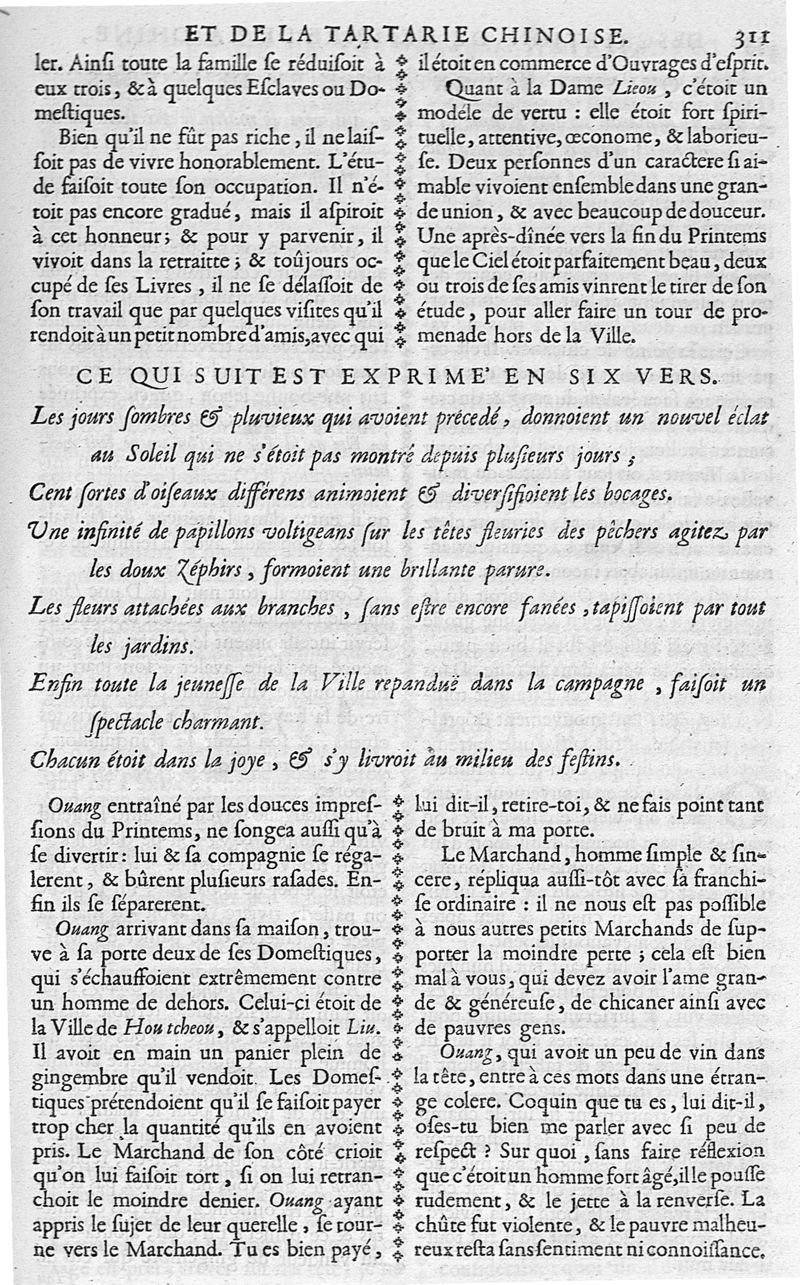 ET DE LA TARTARIE CHINOISE. 311
ler. Ainſi toute la famille ſe réduiſoit à
eux trois, & à quelques Eſclaves ou Do-
meſtiques.
Bien qu'il ne fût pas riche, il ne laiſ-
ſoit pas de vivre honorablement. L'étu-
de faiſoit toute ſon occupation. Il n'é-
toit pas encore gradué, mais il aſpiroit
à cet honneur; & pour y parvenir, il
vivoit dans la retraitte; & toûjours oc-
cupé de ſes Livres, il ne ſe délaſſoit de
ſon travail que par quelques viſites qu'il
rendoit à un petit nombre d'amis, avec qui
il étoit en commerce d'Ouvrages d'eſprit.
Quant à la Dame Lieou, c'étoit un
modéle de vertu : elle étoit fort ſpiri-
tuelle, attentive, œconome, & laborieu-
ſe. Deux perſonnes d'un caractere ſi ai-
mable vivoient enſemble dans une gran-
de union, & avec beaucoup de douceur.
Une après-dînée vers la fin du Printems
que le Ciel étoit parfaitement beau, deux
ou trois de ſes amis vinrent le tirer de ſon
étude, pour aller faire un tour de pro-
menade hors de la Ville.
CE QUI SUIT EST EXPRIME' EN SIX VERS.
Les jours ſombres & pluvieux qui avoient précedé, donnoient un nouvel éclat
au Soleil qui ne s'étoit pas montré depuis pluſieurs jours ;
Cent ſortes d'oiſeaux différens animoient & diverſifioient les bocages.
Une infinité de papillons voltigeans ſur les têtes fleuries des pêchers agitez par
les doux Zéphirs, formoient une brillante parure.
Les fleurs attachées aux branches, ſans eſtre encore fanées, tapiſſoient par tout
les jardins.
Enfin toute la jeuneſſe de la Ville repanduë dans la campagne, faiſoit un
ſpectacle charmant.
Chacun étoit dans la joye, & s'y livroit au milieu des feſtins.
Ouang entraîné par les douces impreſ-
ſions du Printems, ne ſongea auſſi qu'à
ſe divertir: lui & ſa compagnie ſe réga-
lerent, & bûrent pluſieurs raſades. En-
fin ils ſe ſéparerent.
Ouang arrivant dans ſa maiſon, trou-
ve à ſa porte deux de ſes Domeſtiques,
qui s'échauffoient extrêmement contre
un homme de dehors. Celui-ci étoit de
la Ville de Hou tcheou, & s'appelloit Liu.
Il avoit en main un panier plein de
gingembre qu'il vendoit. Les Domeſ-
tiques prétendoient qu'il ſe faiſoit payer
trop cher la quantité qu'ils en avoient
pris. Le Marchand de ſon côté crioit
qu'on lui faiſoit tort, ſi on lui retran-
choit le moindre denier. Ouang ayant
appris le ſujet de leur querelle, ſe tour-
ne vers le Marchand. Tu es bien payé,
lui dit-il, retire-toi, & ne fais point tant
de bruit à ma porte.
Le Marchand, homme ſimple & ſin-
cere, répliqua auſſi-tôt avec ſa franchi-
ſe ordinaire : il ne nous eſt pas poſſible
à nous autres petits Marchands de ſup-
porter la moindre perte ; cela eſt bien
mal à vous, qui devez avoir l'ame gran-
de & généreuſe, de chicaner ainſi avec
de pauvres gens.
Ouang, qui avoit un peu de vin dans
la tête, entre à ces mots dans une étran-
ge colere. Coquin que tu es, lui dit-il,
oſes-tu bien me parler avec ſi peu de
reſpect ? Sur quoi, ſans faire réflexion
que c'étoit un homme fort âgé, il le pouſſe
rudement, & le jette à la renverſe. La
chûte fut violente, & le pauvre malheu-
reux reſta ſans ſentiment ni connoiſſance.